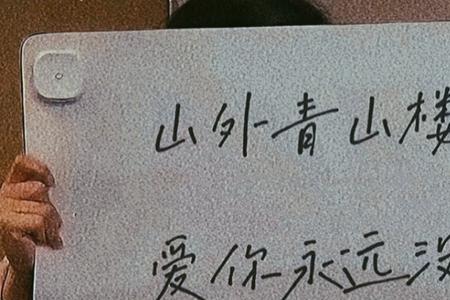 山外青山楼
爱你永远没